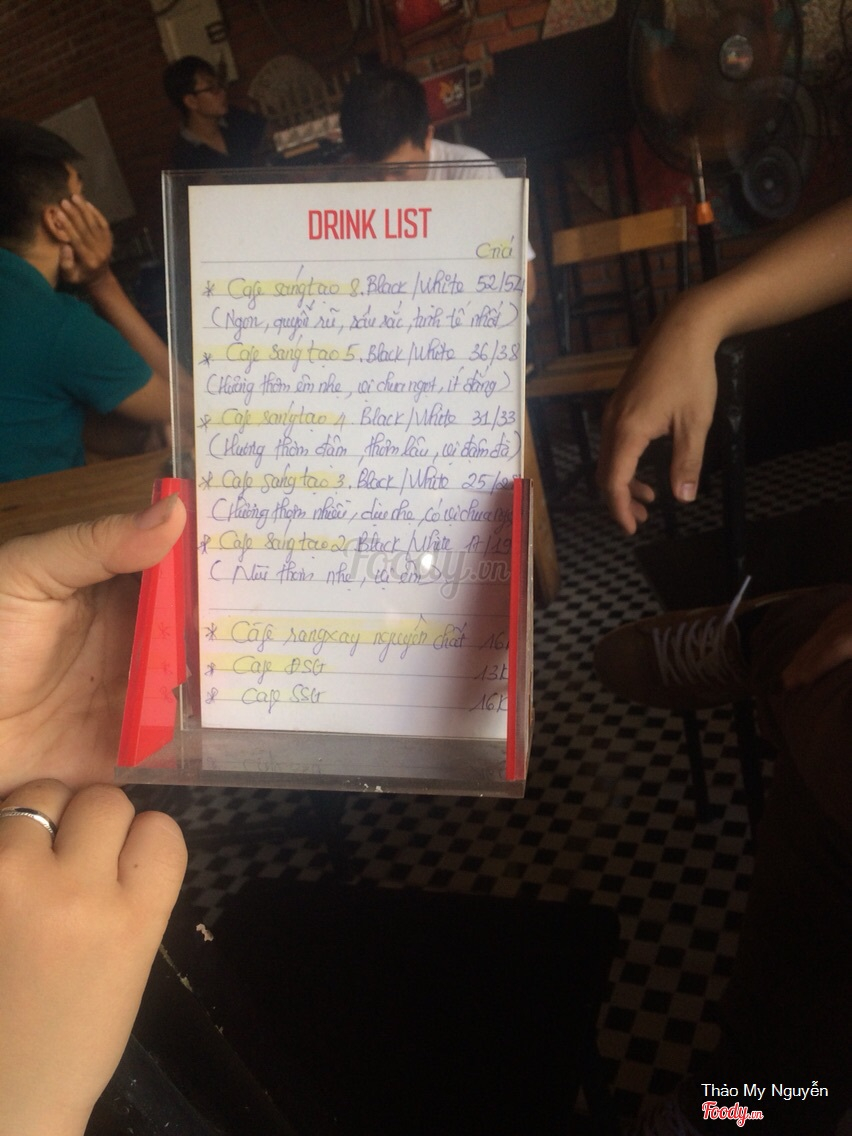 DRINK LIST
Giá
* Cafe sáng tạo 8. Black/White 52/52
(Ngon, quyến rũ, sâu sắc, tinh tế nhất)
* Cafe sáng tạo 5. Black/White 36/38
(Hương thơm êm nhẹ, vị chua ngọt, ít đắng)
* Cafe sáng tạo 4. Black/White 31/33
(Hương thơm đầm, thơm lâu, vị đậm đà)
* Cafe sáng tạo 3. Black/White 25/
(Hương thơm nhiều, dịu nhẹ, có vị chua
* Cafe sáng tạo 2. Black/White 17/19
(Mùi thơm nhẹ, vị êm)
* Cafe rangxay nguyên chất 16
* Cafe ĐSG 13K
* Cafe SSG 16K
Foody.vn
Thảo My Nguyễn
Foody.vn